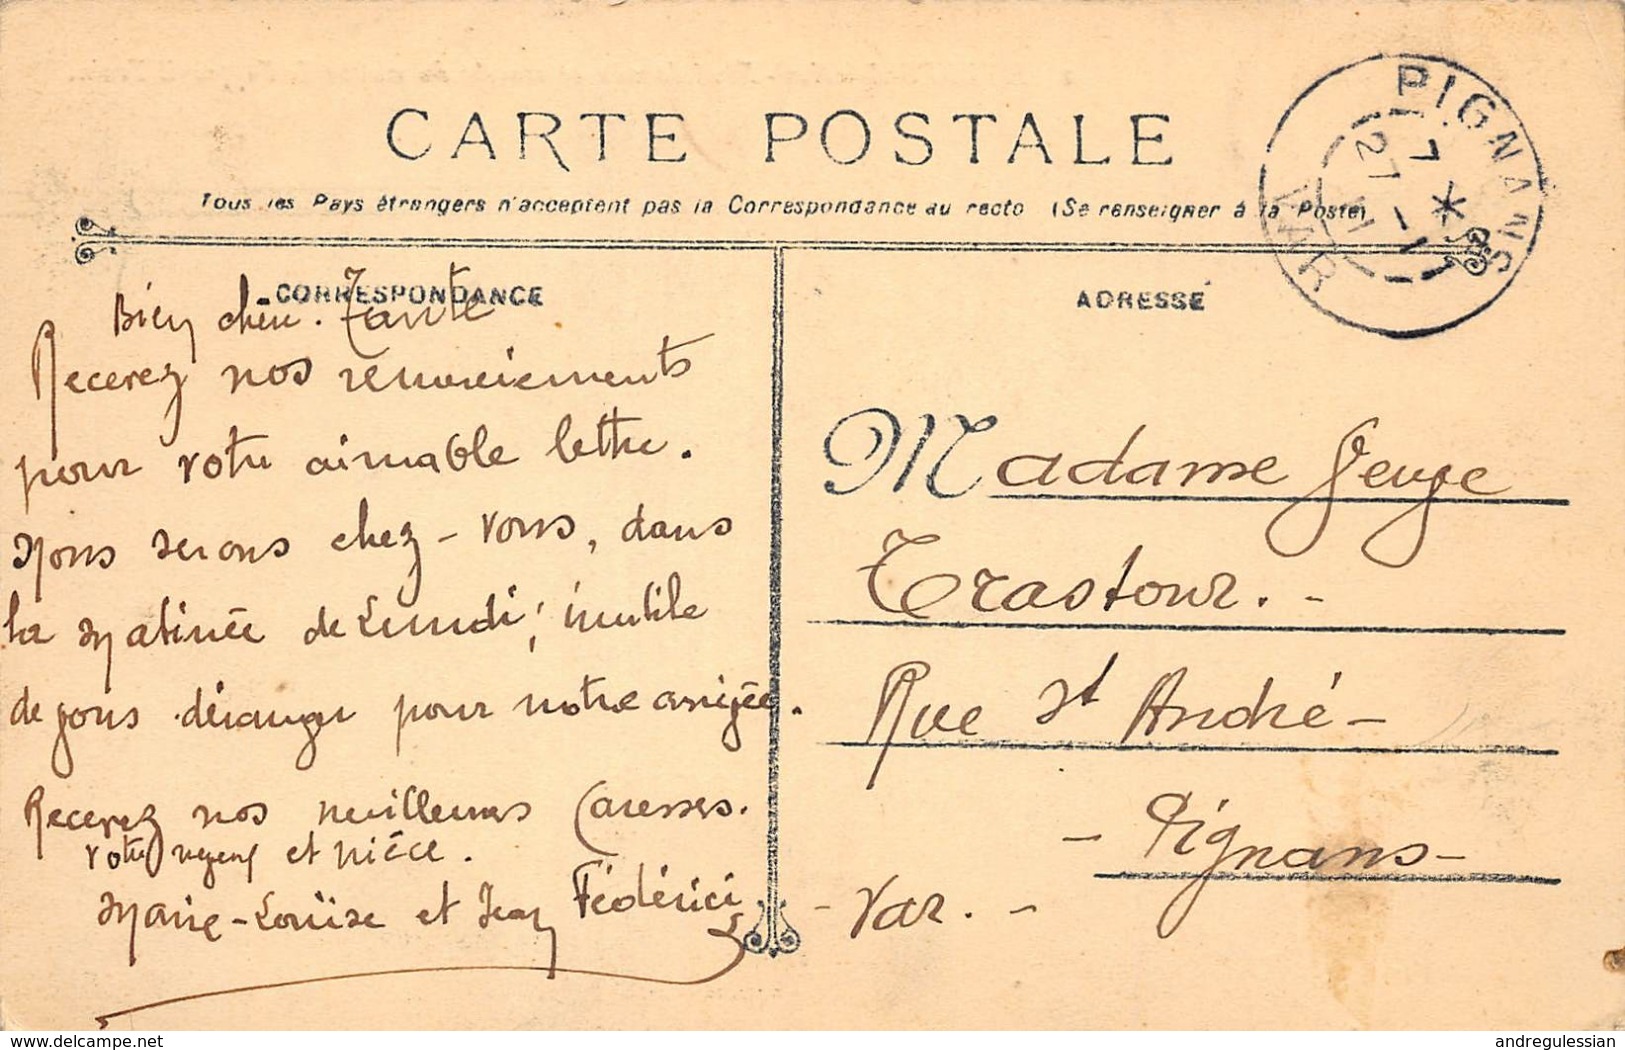 CARTE POSTALE
Tous les Pays étrangers n'acceptent pas la Correspondance au recto (Se renseigner à la Poste)
CORRESPONDANCE
Bien chère Tante
Recevez nos remerciements
pour votre aimable lettre.
Nous serons chez-vous, dans
la Matinée de Lundi; inutile
de vous déranger pour notre arrivée.
Recevez nos meilleures Caresses.
votre neveu et nièce.
Marie-Louise et Jean Fédérici
ADRESSE
Madame
Trastour.-
Rue St André-
- Pignans-
- Var.-
PIGNANS
7 *
27 -1
11
VAR
delcampe.net
andregulessian